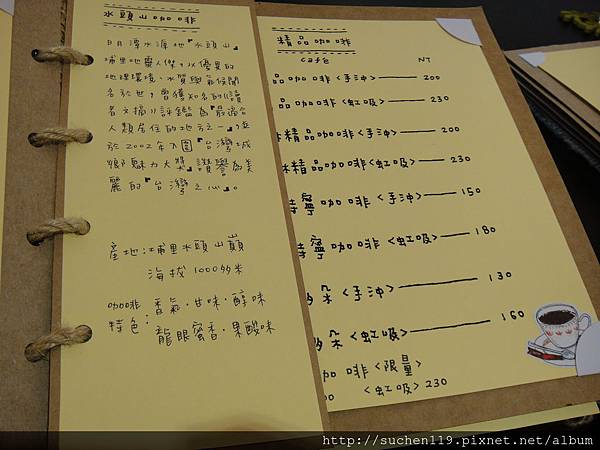 水頭山咖啡
日月潭水源地『水頭山』
埔里地靈人傑，以優異的
地理環境、水質與氣候聞
名於世，曾獲知名的《讀
者文摘》評鑑為『最適合
人類居住的地方之一』，並
於2002年入圍『台灣城
鄉魅力大獎』讚譽為美
麗的『台灣之心』。
產地：埔里水頭山巔
海拔1000多米
咖啡特色：
香氣、甘味、醇味
龍眼蜜香、果酸味
精品咖啡
cafe NT
品咖啡<手沖> 200
品咖啡<虹吸> 230
精品咖啡<手沖> 200
精品咖啡<虹吸> 230
寧咖啡<手沖> 150
寧咖啡<虹吸> 180
朵<手沖> 130
朵<虹吸> 160
咖啡<限量>
<虹吸>230
http://suchen119.pixnet.net/album